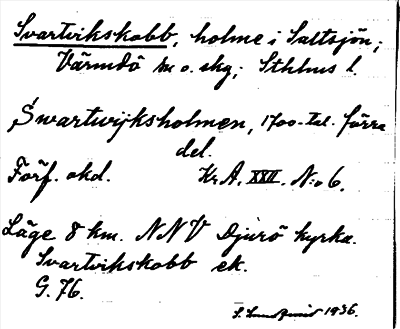 Svartvikskobb, holme i Saltsjön;
Värmdö sn o. skg; Sthlms l.
Swartwijksholmen, 1700-tal. förra
del.
Förf. okd. Kr. A. XXII. N:o 6.
Läge 8 km. NNV Djurö kyrka.
Svartvikskobb ek.
G. 76.
1936.